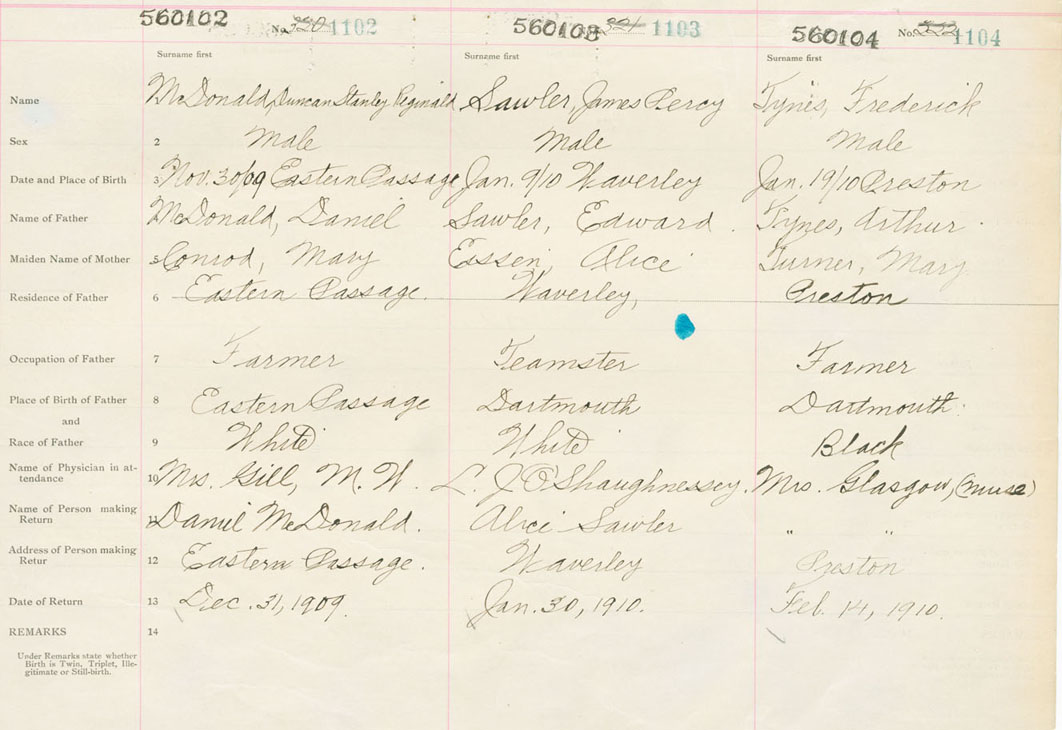 560102 No. 1102 560103 1103 560104 No. 1104
Surname first Surname first Surname first
Name McDonald, Duncan Stanley Reginald Sawler, James Percy Tynes, Frederick
Sex 2 Male Male Male
Date and Place of Birth 3 Nov. 30/09 Eastern Passage Jan. 9/10 Waverley Jan. 19/10 Preston
Name of Father McDonald, Daniel Sawler, Edward. Tynes, Arthur.
Maiden Name of Mother 5 Conrod, Mary Alice Turner, Mary
Residence of Father 6 Eastern Passage. Waverley, Preston
Occupation of Father 7 Farmer Teamster Farmer
Place of Birth of Father 8 Eastern Passage Dartmouth Dartmouth.
and
Race of Father 9 White White Black
Name of Physician in at-
tendance 10 Mrs. Gill, M. W. L. J. O'Shaughnessey. Mrs. Glasgow, (nurse)
Name of Person making
Return 11 Daniel McDonald. Alice Sawler " "
Address of Person making
Retur 12 Eastern Passage. Waverley Preston
Date of Return 13 Dec. 31, 1909. Jan. 30, 1910. Feb. 14, 1910.
REMARKS 14
Under Remarks state whether
Birth is Twin, Triplet, Ille-
gitimate or Still-birth.